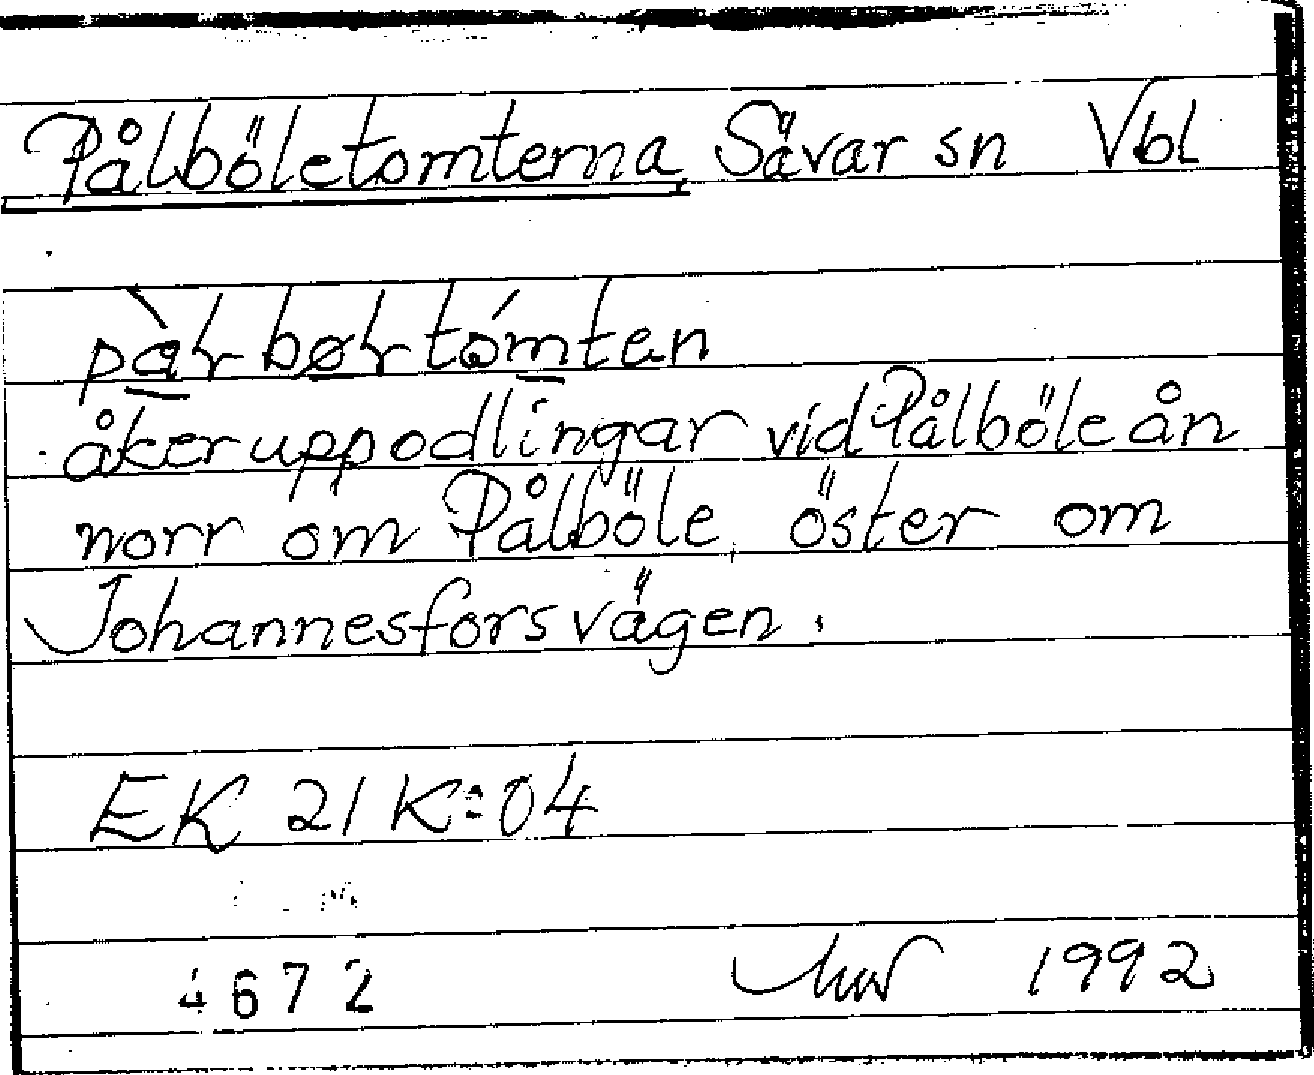 Pålböletomterna Sävar sn Vbl
åkeruppodlingar vid Pålböleån
norr om Pålböle, öster om
Johannesforsvägen.
EK 21 K:04
4672 1992